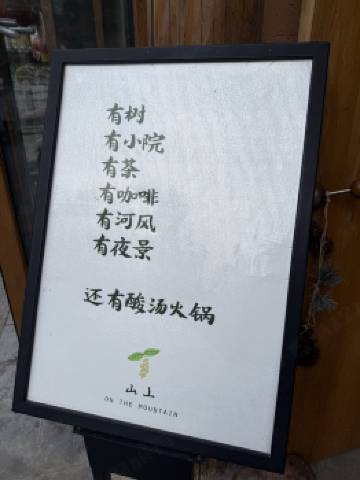 有树
有小院
有茶
有咖啡
有河风
有夜景
还有酸汤火锅
山上
ON THE MOUNTAIN